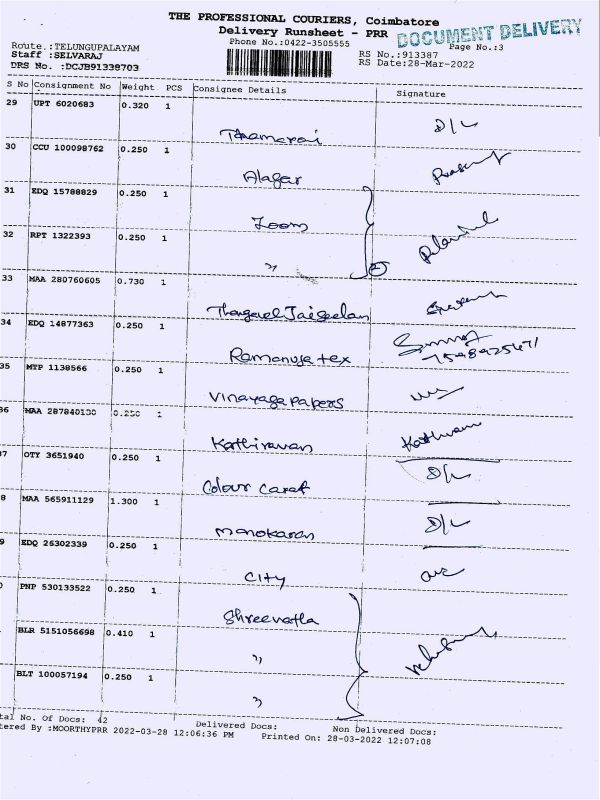 THE PROFESSIONAL COURIERS, Coimbatore
Delivery Runsheet - PRR
DOCUMENT DELIVERY
Phone No.:0422-3505555
Page No.:3
Route.:TELUNGUPALAYAM
RS No.:913387
Staff :SELVARAJ
RS Date:28-Mar-2022
DRS No. :DCJB91338703
S No Consignment No Weight PCS Consignee Details Signature
29 UPT 6020683 0.320 1
Thamarai D/L
30 CCU 100098762 0.250 1
Alagar
31 EDQ 15788829 0.250 1
Zoom
32 RPT 1322393 0.250 1
"
2
33 MAA 280760605 0.730 1
Thangavel Jaiseelan
34 EDQ 14877363 0.250 1
Ramanuja tex
35 MTP 1138566 0.250 1
Vinayaga papers
36 MAA 287840130 0.250 1
Kathiravan
37 OTY 3651940 0.250 1
Colour D/L
8 MAA 565911129 1.300 1
Manokaran D/L
9 EDQ 26302339 0.250 1
City
PNP 530133522 0.250 1
BLR 5151056698 0.410 1
"
BLT 100057194 0.250 1
"
tal No. Of Docs: 42 Delivered Docs: Non Delivered Docs:
tered By :MOORTHYPRR 2022-03-28 12:06:36 PM Printed On: 28-03-2022 12:07:08